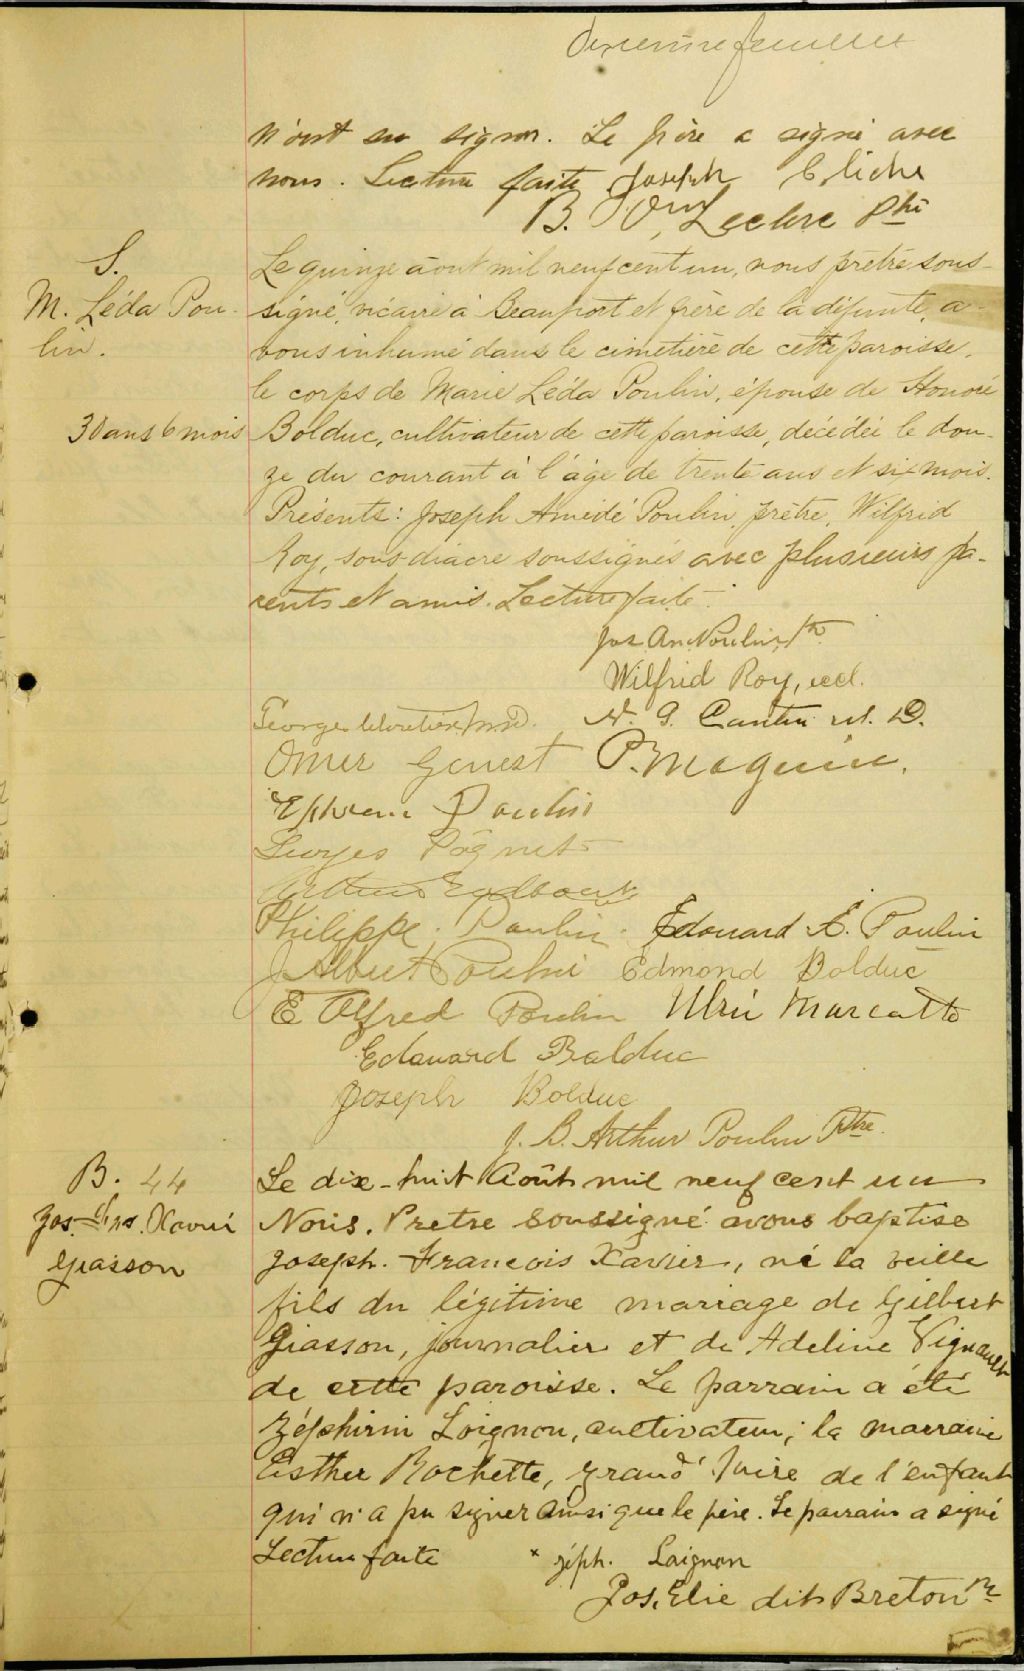 n'ont su signer. Le père a signé avec
nous. Lecture faite Joseph Cliche
B. Leclerc Ptre
S.
M. Léda Pou-
lin.
30 ans 6 mois
Le quinze août mil neuf cent un, nous prêtre sous-
signé, vicaire à Beauport et frère de la défunte, a-
vons inhumé dans le cimetière de cette paroisse,
le corps de Marie Léda Poulin, épouse de Honoré
Bolduc, cultivateur de cette paroisse, décédée le dou-
ze du courant à l'âge de trente ans et six mois.
Présents: Joseph Amédé Poulin, prêtre, Wilfrid
Roy, sous-diacre soussignés avec plusieurs pa-
rents et amis. Lecture faite.
Jos. Am. Poulin, Ptr
Wilfrid Roy, eccl.
Georges Cloutier M.D. N. G. Cantin M. D.
Omer Genest P. Maguire.
Ephrem Poulin
Philippe Poulin. Edouard E. Poulin
J Albert Poulin Edmond Bolduc
E Alfred Poulin Ulric Marcotte
Edouard Bolduc
Joseph Bolduc
J. B. Arthur Poulin Ptre.
B. 44
Jos. Frs. Xavier
Giasson
Le dix-huit Août mil neuf cent un
Nous, Pretre soussigné avons baptise
Joseph. François Xavier, né la veille
fils du légitime mariage de Gilbert
Giasson, journalier et de Adeline Vignault
de cette paroisse. Le parrain a été
Zéphirin Loignon, cultivateur; la marraine
Esther Rochette, grand'mère de l'enfant
qui n'a pu signer ainsi que le père. Le parrain a signé
Lecture faite × Zéph. Loignon
Jos. Elie dit Breton Ptr